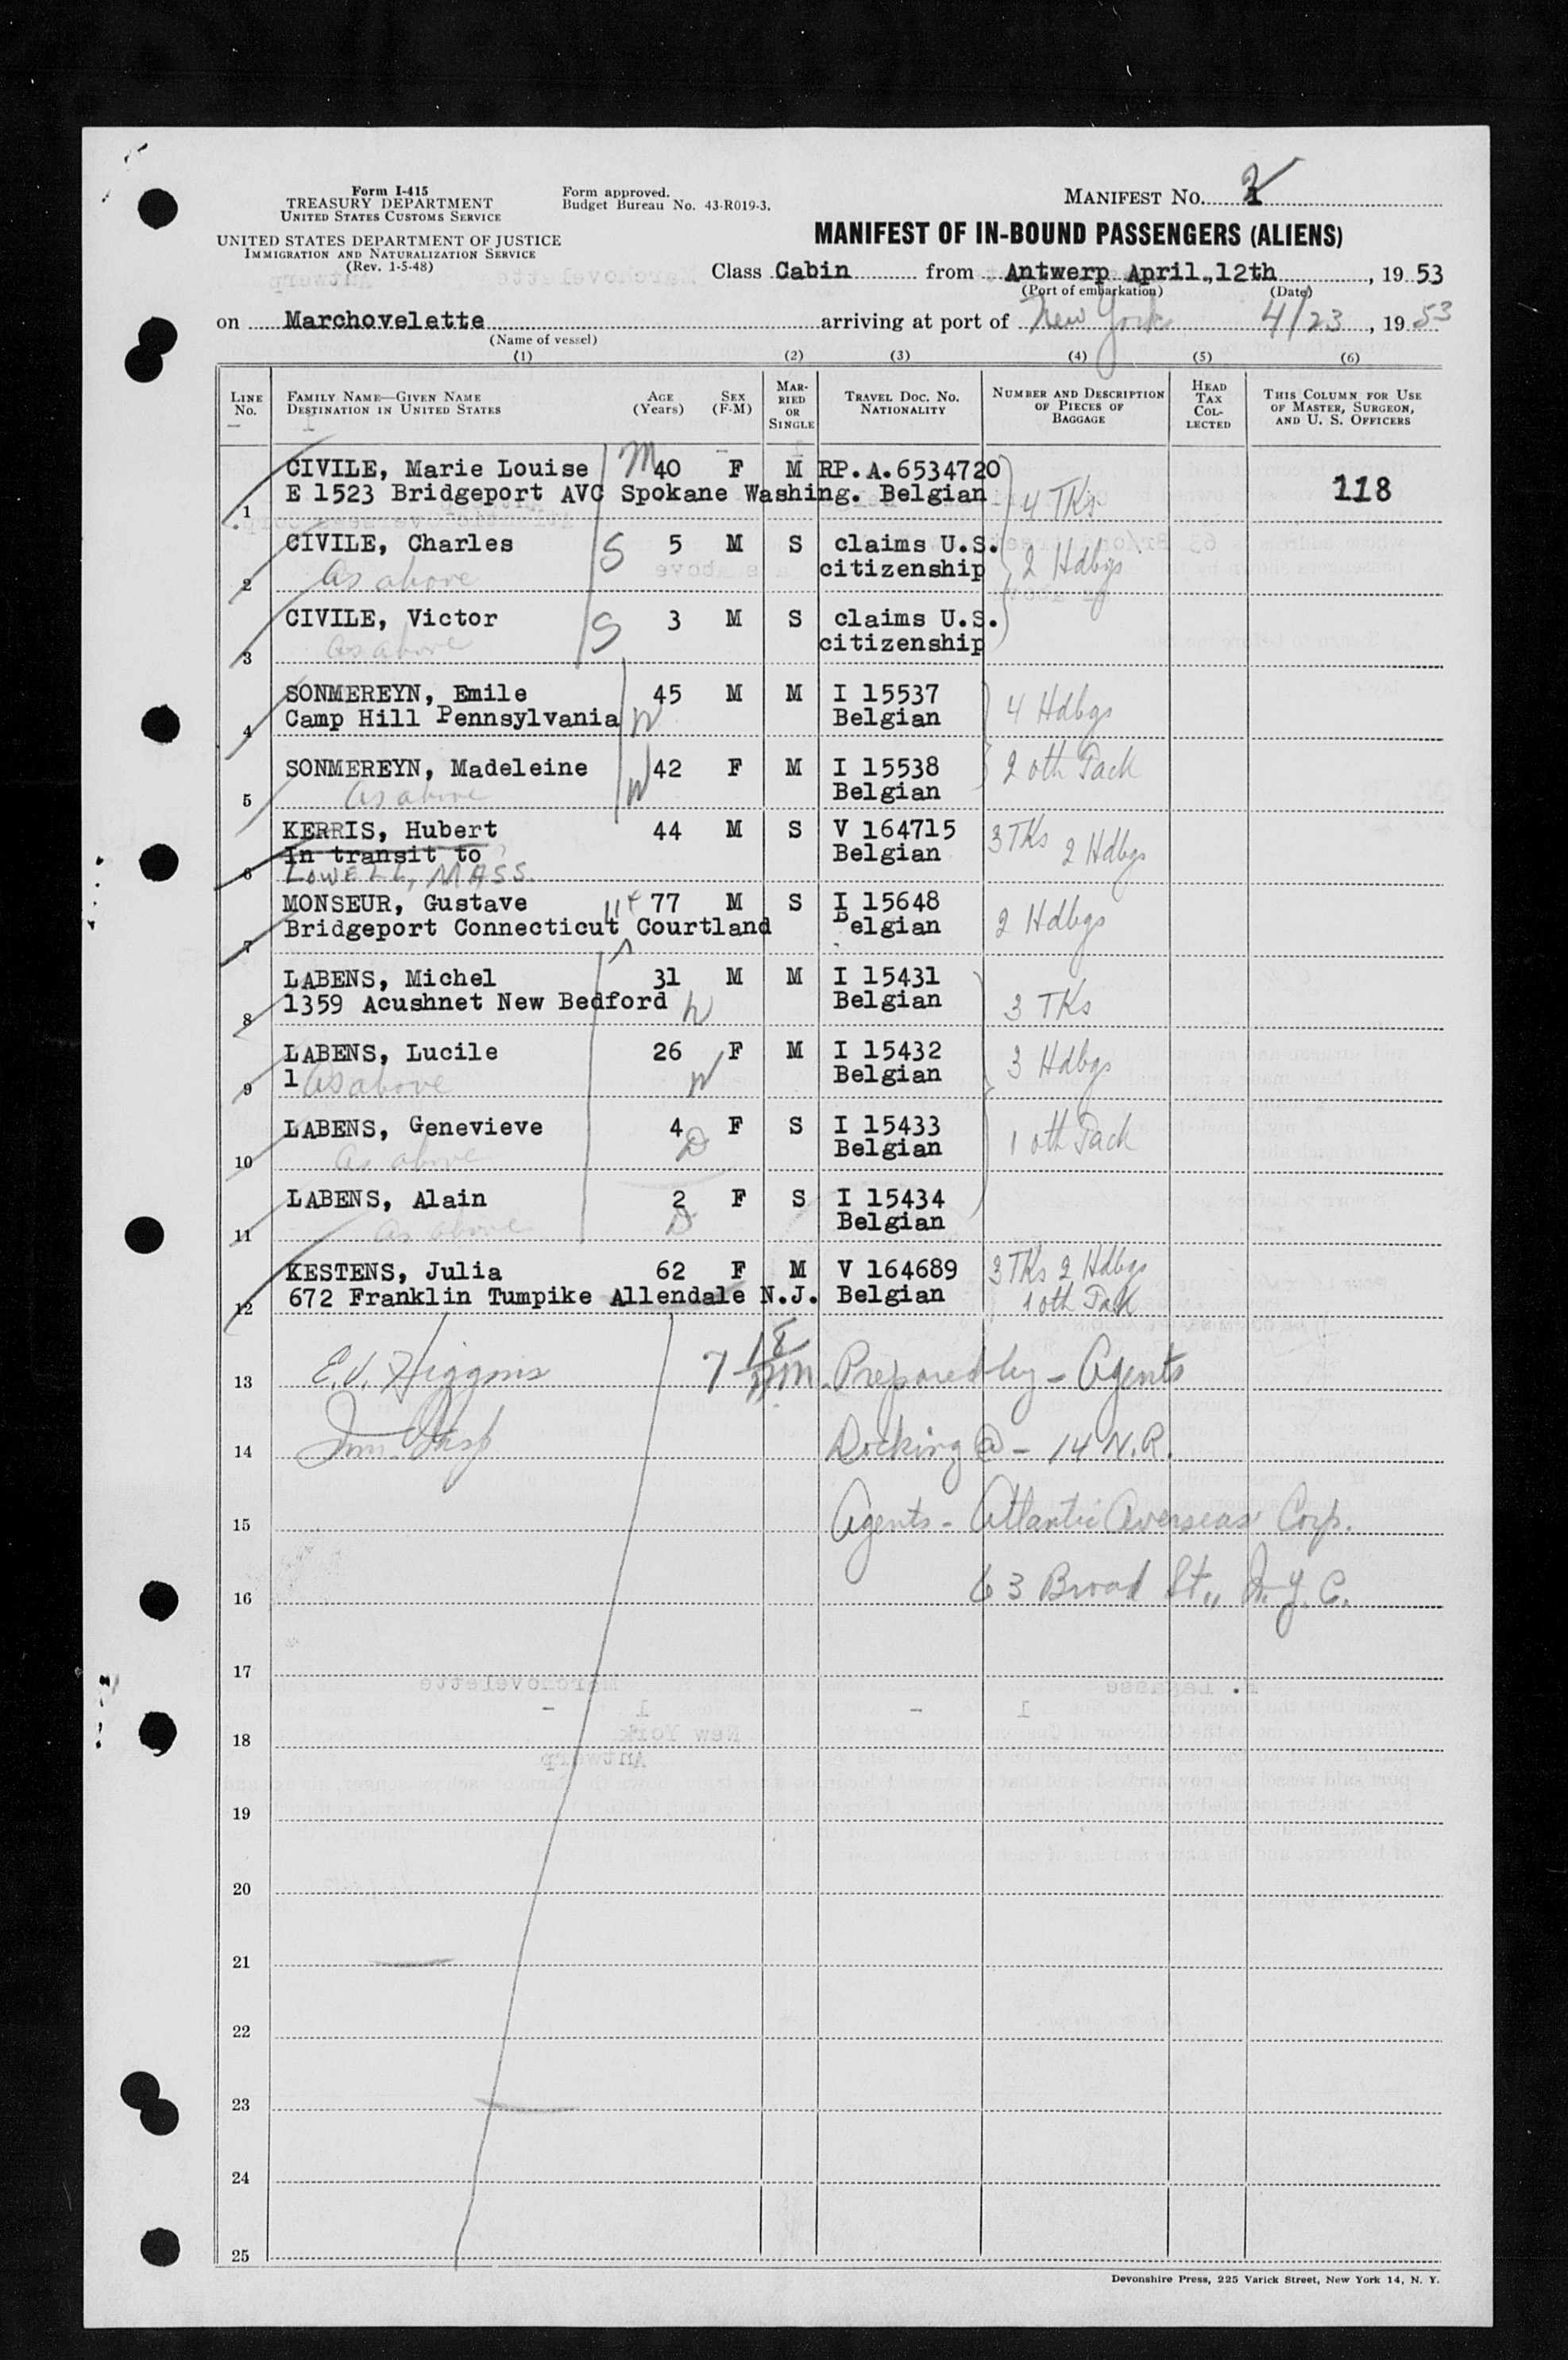 Form I-415
TREASURY DEPARTMENT
UNITED STATES CUSTOMS SERVICE
UNITED STATES DEPARTMENT OF JUSTICE
IMMIGRATION AND NATURALIZATION SERVICE
(Rev. 1-5-48)
Form approved.
Budget Bureau No. 43-R019-3.
MANIFEST NO. 2
MANIFEST OF IN-BOUND PASSENGERS (ALIENS)
Class Cabin from Antwerp April.,12th, 19 53
(Port of embarkation) (Date)
on Marchovelette arriving at port of New York 4/23, 19 53
(Name of vessel)
(1) (2) (3) (4) (5) (6)
LINE No. FAMILY NAME—GIVEN NAME DESTINATION IN UNITED STATES AGE (Years) SEX (F-M) MARRIED OR SINGLE TRAVEL DOC. NO. NATIONALITY NUMBER AND DESCRIPTION OF PIECES OF BAGGAGE HEAD TAX COLLECTED THIS COLUMN FOR USE OF MASTER, SURGEON, AND U. S. OFFICERS
CIVILE, Marie Louise M 40 F M RP.A.6534720
1 E 1523 Bridgeport AVC Spokane Washing. Belgian 4 TKs 118
CIVILE, Charles S 5 M S claims U.S.
2 As above citizenship 2 Hdbgs
CIVILE, Victor S 3 M S claims U.S.
3 As above citizenship
SONMEREYN, Emile 45 M M I 15537
4 Camp Hill Pennsylvania W Belgian 4 Hdbgs
SONMEREYN, Madeleine 42 F M I 15538 2 oth Pack
5 As above W Belgian
KERRIS, Hubert 44 M S V 164715 3 TKs 2 Hdbgs
In transit to Belgian
6 LOWELL, MASS.
MONSEUR, Gustave 77 M S I 15648
7 Bridgeport Connecticut Courtland Belgian 2 Hdbgs
LABENS, Michel 31 M M I 15431
8 1359 Acushnet New Bedford W Belgian 3 TKs
LABENS, Lucile 26 F M I 15432 3 Hdbgs
9 l As above W Belgian
LABENS, Genevieve 4 F S I 15433 1 oth Pack
10 As above D Belgian
LABENS, Alain 2 F S I 15434
11 As above D Belgian
KESTENS, Julia 62 F M V 164689 3 TKs 2 Hdbgs
12 672 Franklin Tumpike Allendale N.J. Belgian 1 oth Pack
13 E.J. Higgins Prepared by - Agents
14 Imm. Insp Docking @ - 14 N.R.
15 Agents - Atlantic Overseas Corp.
16 63 Broad St., N.Y.C.
17
18
19
20
21
22
23
24
25
Devonshire Press, 225 Varick Street, New York 14, N. Y.